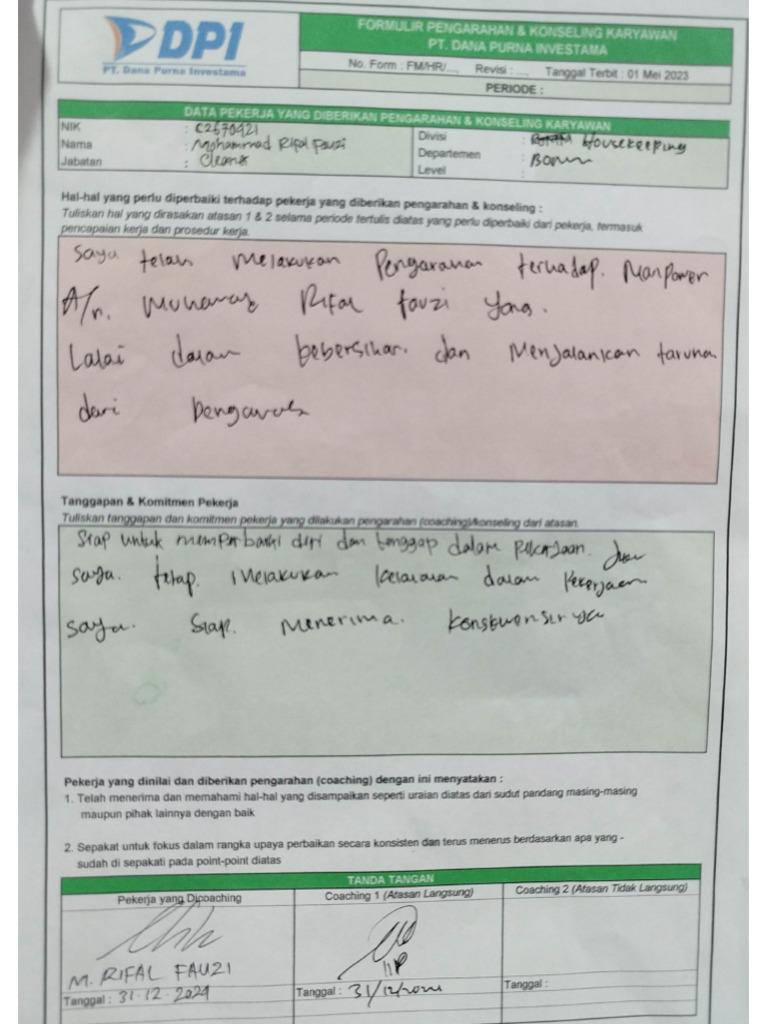 DPI
PT. Dana Purna Investama
FORMULIR PENGARAHAN & KONSELING KARYAWAN
PT. DANA PURNA INVESTAMA
No. Form : FM/HR/..., Revisi : ..., Tanggal Terbit : 01 Mei 2023
PERIODE :
DATA PEKERJA YANG DIBERIKAN PENGARAHAN & KONSELING KARYAWAN
NIK : C2670421
Nama : Mohammad Rifal Fauzi
Jabatan :
Divisi : Housekeeping
Departemen :
Level :
Hal-hal yang perlu diperbaiki terhadap pekerja yang diberikan pengarahan & konseling :
Tuliskan hal yang dirasakan atasan 1 & 2 selama periode tertulis diatas yang perlu diperbaiki dari pekerja, termasuk
pencapaian kerja dan prosedur kerja.
Saya telah Melakukan Pengarahan terhadap. Manpower
A/n. Rifal fauzi yang.
Lalai dalam bebersihan. dan Menjalankan
dari Pengawas
Tanggapan & Komitmen Pekerja
Tuliskan tanggapan dan komitmen pekerja yang dilakukan pengarahan (coaching)/konseling dari atasan.
Siap untuk memperbaiki diri dan tanggap dalam Pekerjaan.
Saya. tetap. Melakukan kelalaian dalam Pekerjaan
Saya. Siap. Menerima.
Pekerja yang dinilai dan diberikan pengarahan (coaching) dengan ini menyatakan :
1. Telah menerima dan memahami hal-hal yang disampaikan seperti uraian diatas dari sudut pandang masing-masing
maupun pihak lainnya dengan baik
2. Sepakat untuk fokus dalam rangka upaya perbaikan secara konsisten dan terus menerus berdasarkan apa yang -
sudah di sepakati pada point-point diatas
TANDA TANGAN
Pekerja yang Dicoaching
Coaching 1 (Atasan Langsung)
Coaching 2 (Atasan Tidak Langsung)
M. RIFAL FAUZI
Tanggal : 31-12-2024
Tanggal : 31/12/2024
Tanggal :